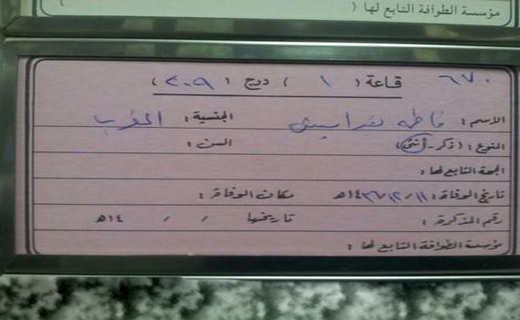 مؤسسة الطوافة التابع لها (
٦٧٠ قاعة ( ١ ) درج ( ٢٠٩ )
الاسم : فاطمه الجنسية : المغرب
النوع : (ذكر - أنثى) السن :
الجهة التابع لها :
تاريخ الوفاة : ١١ / ١٢ / ١٤٣٦هـ مكان الوفاة :
رقم المذكرة : تاريخها / / ١٤هـ
مؤسسة الطوافة التابع لها :